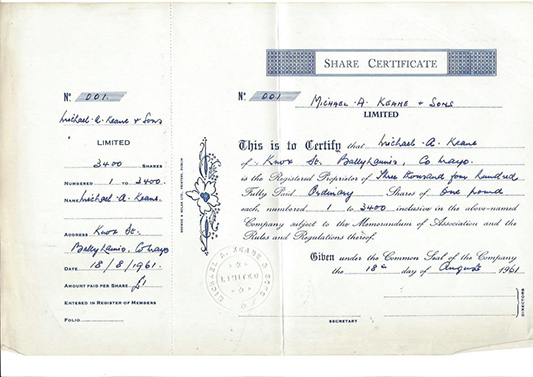 Nº 001
Michael A. Keane & Sons
LIMITED
3400 SHARES
NUMBERED 1 TO 3400.
NAME Michael A. Keane.
ADDRESS Knox St.
Ballyhaunis, Co Mayo
DATE 18/8/1961.
AMOUNT PAID PER SHARE £1
ENTERED IN REGISTER OF MEMBERS
FOLIO
SHARE CERTIFICATE
Nº 001 MICHAEL A. KEANE & SONS
LIMITED
This is to Certify that Michael A. Keane
of Knox St. Ballyhaunis, Co Mayo.
is the Registered Proprietor of Three thousand four hundred
Fully Paid Ordinary Shares of One pound
each, numbered 1 to 3400 inclusive in the above-named
Company subject to the Memorandum of Association and the
Rules and Regulations thereof.
Given under the Common Seal of the Company
the 18th day of August 1961
DIRECTORS
SECRETARY
MICHAEL A. KEANE & SONS
LIMITED